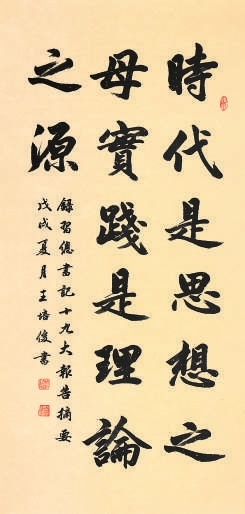 時代是思想之
母實踐是理論
之源
録習總書記十九大報告摘要
戊戌夏月王培俊書